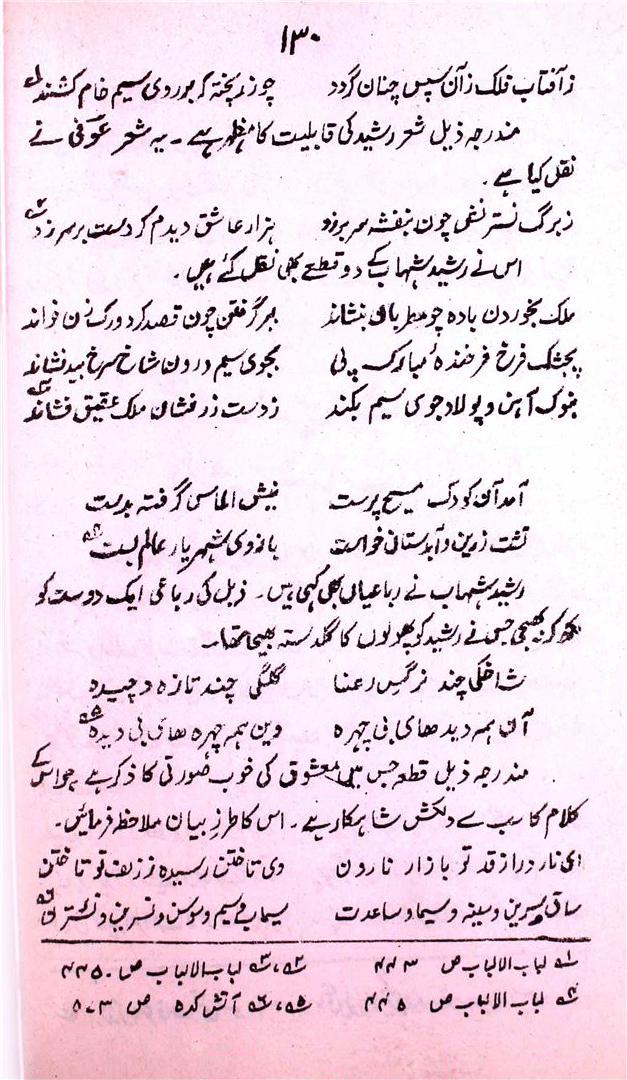 ۱۳۰
ز آفتاب فلک زآن سپس چنان گردد چو زر پخته که بوروی سیم خام کشند ۱؎
مندرجہ ذیل شعر رشید کی قابلیت کا مظہر ہے ۔ یہ شعر عوفی نے
نقل کیا ہے ۔
ز برگ نسترنفی چون بنفشہ سر بر زد ہزار عاشق دیدم کہ دست بر سر زد ۲؎
اس نے رشید شہاب کے دو قطعے بھی نقل کئے ہیں ۔
ملک بخوردن بادہ چو مطربان بنشاند بہر گرفتن چون قصد کرد ورگ زن خواند
پجشک فرخ فرخندہ مبارک پی بجوی سیم درون شاخ سرخ بید نشاند
بنوک آہن و پولاد جوی سیم بکند ز دست زر فشان ملک عقیق فشاند ۳؎
آمد آن کودک مسیح پرست نیش الماس گرفتہ بدست
تشت زرین و آبدستانی خواست بازوی شہریار عالم بست ۴؎
رشید شہاب نے رباعیاں بھی کہی ہیں ۔ ذیل کی رباعی ایک دوست کو
لکھ کر بھیجی جس نے رشید کو پھولوں کا گلدستہ بھیجا تھا ۔
شاخکی چند نرگس رعنا گلکی چند تازہ و چیدہ
آن ہمہ دیدہای بی چہرہ وین ہمہ چہرہ ہای بی دیدہ ۵؎
مندرجہ ذیل قطعہ جس میں معشوق کی خوب صورتی کا ذکر ہے جو اس کے
کلام کا سب سے دلکش شاہکار ہے ۔ اس کا طرزِ بیان ملاحظہ فرمائیں ۔
ای نار دراز قد تو بازار نارون وی تاختن رسیدہ ز زلف تو تا ختن
ساق و سرین و سینہ و سیما و ساعدت سیماب و سیم و سوسن و نسرین و نسترن ۶؎
۱؎ لباب الالباب ص ۴۴۳ ۲؎، ۳؎ لباب الالباب ص ۴۴۵۰
۴؎ لباب الالباب ص ۴۴۵ ۵؎، ۶؎ آتش کدہ ص ۵۰۳